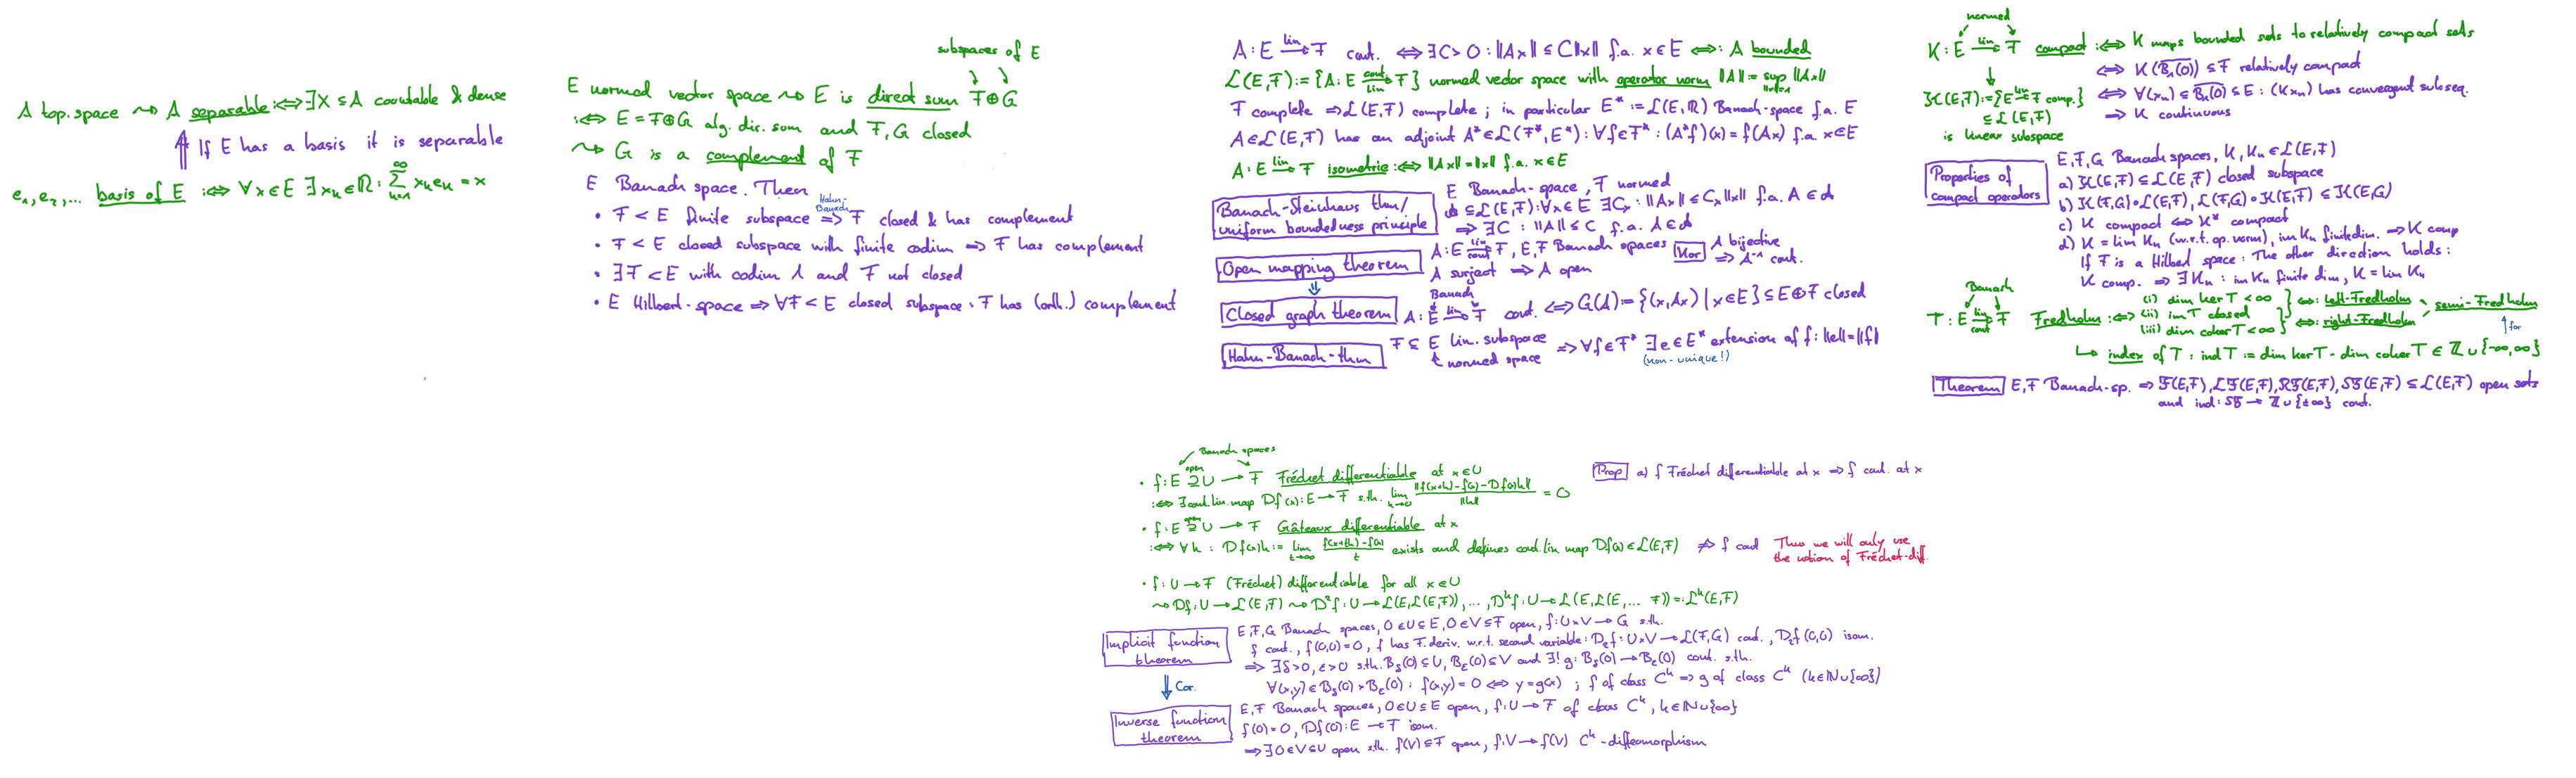 A top. space ⤳ A separable :⟺ ∃X ⊆ A countable & dense
⇑ If E has a basis it is separable
e₁, e₂, ... basis of E :⟺ ∀x ∈ E ∃xₙ ∈ ℝ : ∑_{n=1}^∞ xₙeₙ = x
subspaces of E
E normed vector space ⤳ E is direct sum F⊕G
:⟺ E = F⊕G alg. dir. sum and F, G closed
⤳ G is a complement of F
E Banach space. Then
Hahn-Banach
• F < E finite subspace ⟹ F closed & has complement
• F < E closed subspace with finite codim ⟹ F has complement
• ∃F < E with codim 1 and F not closed
• E Hilbert-space ⟹ ∀F < E closed subspace : F has (orth.) complement
A : E →^{lin} F cont. ⟺ ∃C > 0 : ||Ax|| ≤ C||x|| f.a. x ∈ E ⟺: A bounded
ℒ(E,F) := {A : E →^{cont}_{lin} F} normed vector space with operator norm ||A|| := sup_{||x||=1} ||Ax||
F complete ⟹ ℒ(E,F) complete ; in particular E* := ℒ(E,ℝ) Banach-space f.a. E
A ∈ ℒ(E,F) has an adjoint A* ∈ ℒ(F*,E*) : ∀f ∈ F* : (A*f)(x) = f(Ax) f.a. x ∈ E
A : E →^{lin} F isometric :⟺ ||Ax|| = ||x|| f.a. x ∈ E
Banach-Steinhaus thm/
uniform boundedness principle
E Banach-space, F normed
𝒜 ⊆ ℒ(E,F) : ∀x ∈ E ∃Cₓ : ||Ax|| ≤ Cₓ||x|| f.a. A ∈ 𝒜
⟹ ∃C : ||A|| ≤ C f.a. A ∈ 𝒜
Open mapping theorem
A : E →^{lin}_{cont} F, E,F Banach spaces
A surject ⟹ A open
Kor A bijective
⟹ A⁻¹ cont.
⇓
Closed graph theorem
Banach
A : E →^{lin} F cont. ⟺ G(A) := {(x,Ax) | x ∈ E} ⊆ E⊕F closed
Hahn-Banach-thm
F ⊆ E lin. subspace ⟹ ∀f ∈ F* ∃e ∈ E* extension of f : ||e|| = ||f||
normed space
(non-unique!)
normed
K : E →^{lin} F compact :⟺ K maps bounded sets to relatively compact sets
⟺ K(B₁(0)) ⊆ F relatively compact
𝒦(E,F) := {E →^{lin} F comp.} ⟺ ∀(xₙ) ⊆ B₁(0) ⊆ E : (Kxₙ) has convergent subseq.
⊆ ℒ(E,F) ⟹ K continuous
is linear subspace
Properties of
compact operators
E,F,G Banach spaces, K, Kₙ ∈ ℒ(E,F)
a) 𝒦(E,F) ⊆ ℒ(E,F) closed subspace
b) 𝒦(F,G)∘ℒ(E,F), ℒ(F,G)∘𝒦(E,F) ⊆ 𝒦(E,G)
c) K compact ⟺ K* compact
d) K = lim Kₙ (w.r.t. op. norm), im Kₙ finitedim. ⟹ K comp
If F is a Hilbert space : The other direction holds :
K comp. ⟹ ∃Kₙ : im Kₙ finite dim, K = lim Kₙ
Banach
T : E →^{lin}_{cont} F Fredholm :⟺
(i) dim ker T < ∞
(ii) im T closed
(iii) dim coker T < ∞
⟺: left-Fredholm
⟺: right-Fredholm
semi-Fredholm
↑ for
↳ index of T : ind T := dim ker T - dim coker T ∈ ℤ ∪ {-∞,∞}
Theorem E,F Banach-sp. ⟹ ℱ(E,F), ℒℱ(E,F), ℛℱ(E,F), 𝒮ℱ(E,F) ⊆ ℒ(E,F) open sets
and ind : 𝒮ℱ → ℤ ∪ {±∞} cont.
Banach spaces
• f : E ⊇^{open} U → F Fréchet differentiable at x ∈ U
:⟺ ∃ cont. lin. map Df(x) : E → F s.th. lim_{h→0} ||f(x+h)-f(x)-Df(x)h|| / ||h|| = 0
Prop a) f Fréchet differentiable at x ⟹ f cont. at x
• f : E ⊇^{open} U → F Gâteaux differentiable at x
:⟺ ∀h : Df(x)h := lim_{t→0} (f(x+th)-f(x))/t exists and defines cont. lin map Df(x) ∈ ℒ(E,F) ⇏ f cont
Thus we will only use
the notion of Fréchet-diff.
• f : U → F (Fréchet) differentiable for all x ∈ U
⤳ Df : U → ℒ(E,F) ⤳ D²f : U → ℒ(E,ℒ(E,F)), ..., Dᵏf : U → ℒ(E,ℒ(E,... F)) =: ℒᵏ(E,F)
Implicit function
theorem
E,F,G Banach spaces, 0 ∈ U ⊆ E, 0 ∈ V ⊆ F open, f : U×V → G s.th.
f cont., f(0,0) = 0, f has F. deriv. w.r.t. second variable : D₂f : U×V → ℒ(F,G) cont., D₂f(0,0) isom.
⟹ ∃δ > 0, ε > 0 s.th. B_δ(0) ⊆ U, B_ε(0) ⊆ V and ∃! g : B_δ(0) → B_ε(0) cont. s.th.
∀(x,y) ∈ B_δ(0) × B_ε(0) : f(x,y) = 0 ⟺ y = g(x) ; f of class Cᵏ ⟹ g of class Cᵏ (k ∈ ℕ ∪ {∞})
⇓ Cor.
Inverse function
theorem
E,F Banach spaces, 0 ∈ U ⊆ E open, f : U → F of class Cᵏ, k ∈ ℕ ∪ {∞}
f(0) = 0, Df(0) : E → F isom.
⟹ ∃ 0 ∈ V ⊆ U open s.th. f(V) ⊆ F open, f : V → f(V) Cᵏ-diffeomorphism